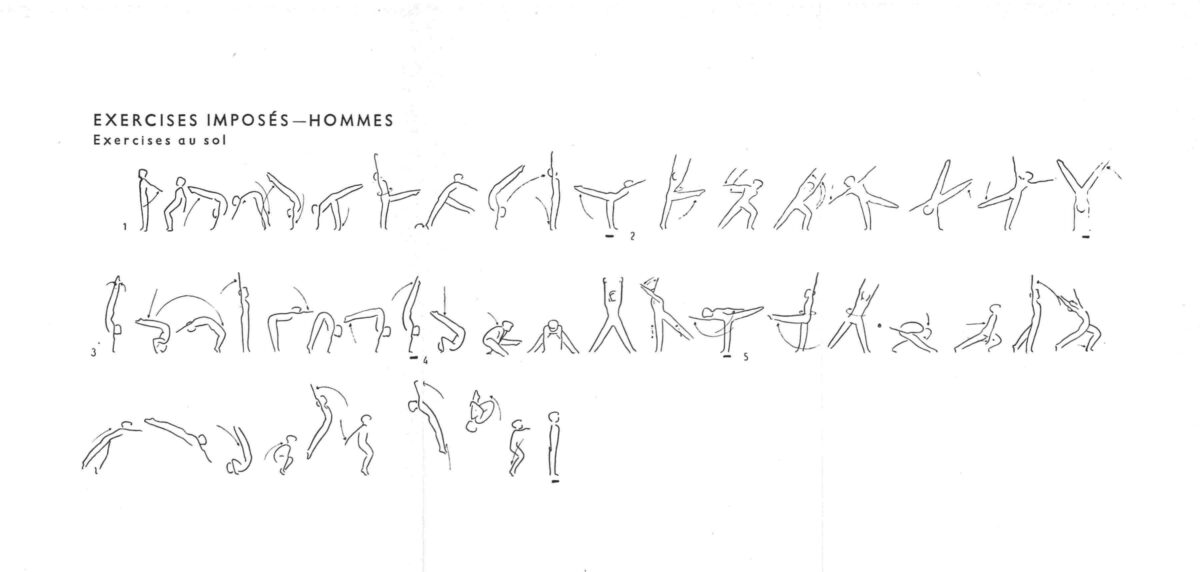 EXERCISES IMPOSÉS—HOMMES
Exercises au sol
1 2
3 4 5